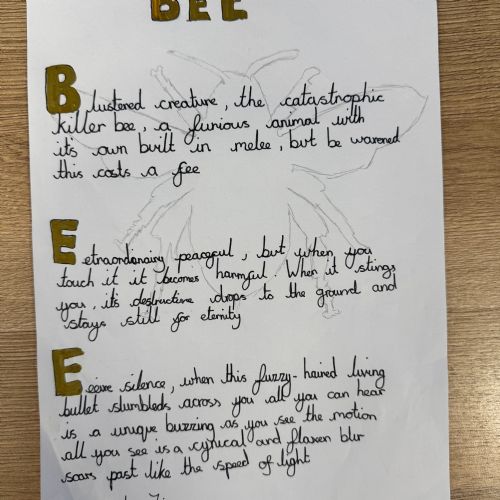 BEE
Blustered creature, the catastrophic
killer bee, a furious animal with
it's own built in melee, but be warened
this costs a fee
Eetraordonairy peaceful, but when you
touch it it becomes harmful. When it stings
you, it's destructive drops to the ground and
stays still for eternity
Eeeire silence, when this fuzzy-haired living
bullet slumbleds across you all you can hear
is a unique buzzing as you see the motion
all you see is a cynical and flaxen blur
soars past like the speed of light